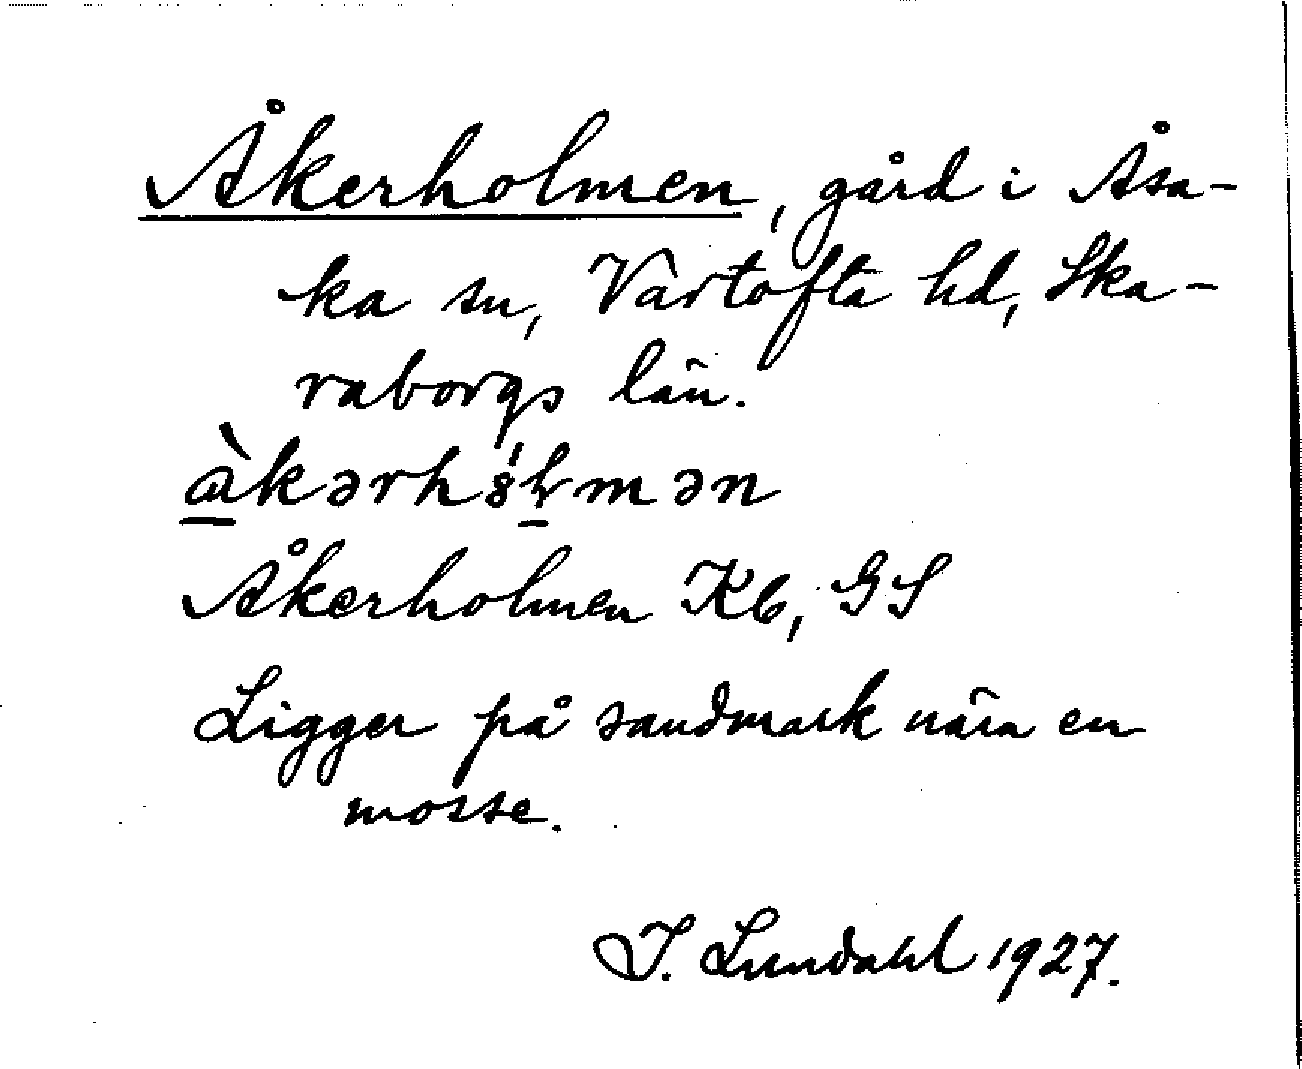 Åkerholmen, gård i Åsa-
ka sn, Vartofta hd, Ska-
raborgs län.
Åkerholmen Kb, GS
Ligger på sandmark nära en
mosse.
I. Lundahl 1927.